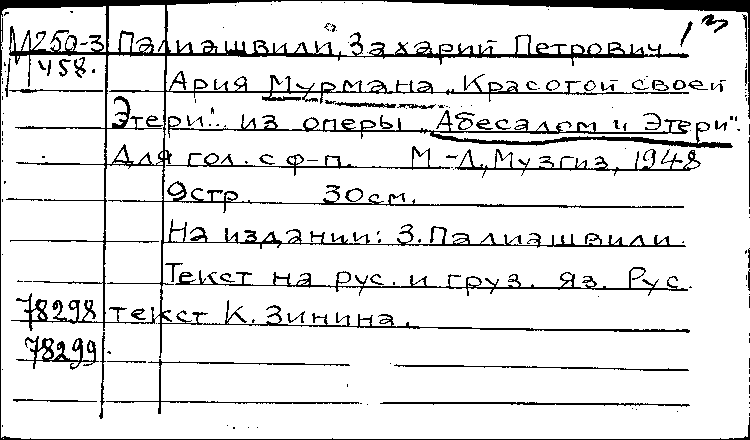 М250-3 Палиашвили, Захарий Петрович
458. Ария Мурмана „Красотой своей
Этери". из оперы „Абесалом и Этери".
Для гол. с ф-п. М-Л, Музгиз, 1948
9стр. 30см.
На издании: З. Палиашвили.
Текст на рус. и груз. яз. Рус.
78298 текст К. Зинина.
78299.